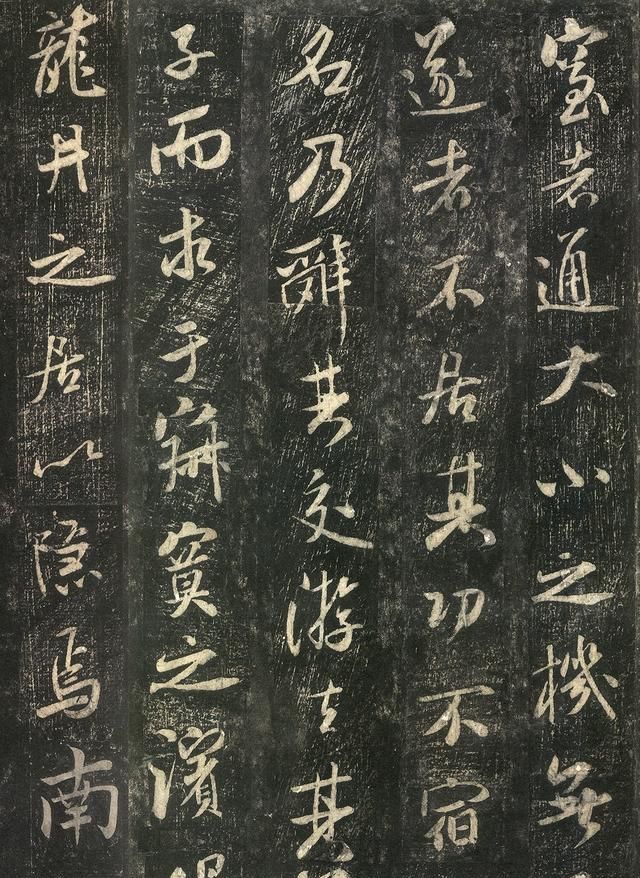 窒者通大小之機無
遂者不居其功不宿
名乃辭其交游去其
子而求于寂寞之濱
龍井之居以隱焉南